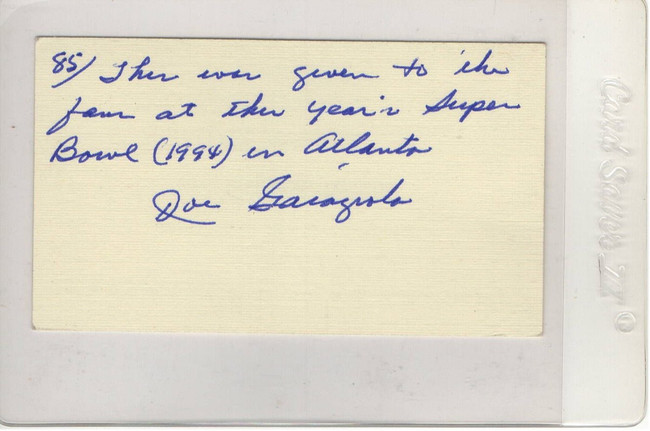 85/ This was given to the
fans at this year's Super
Bowl (1994) in Atlanta
Joe Garagiola
Card Saver II